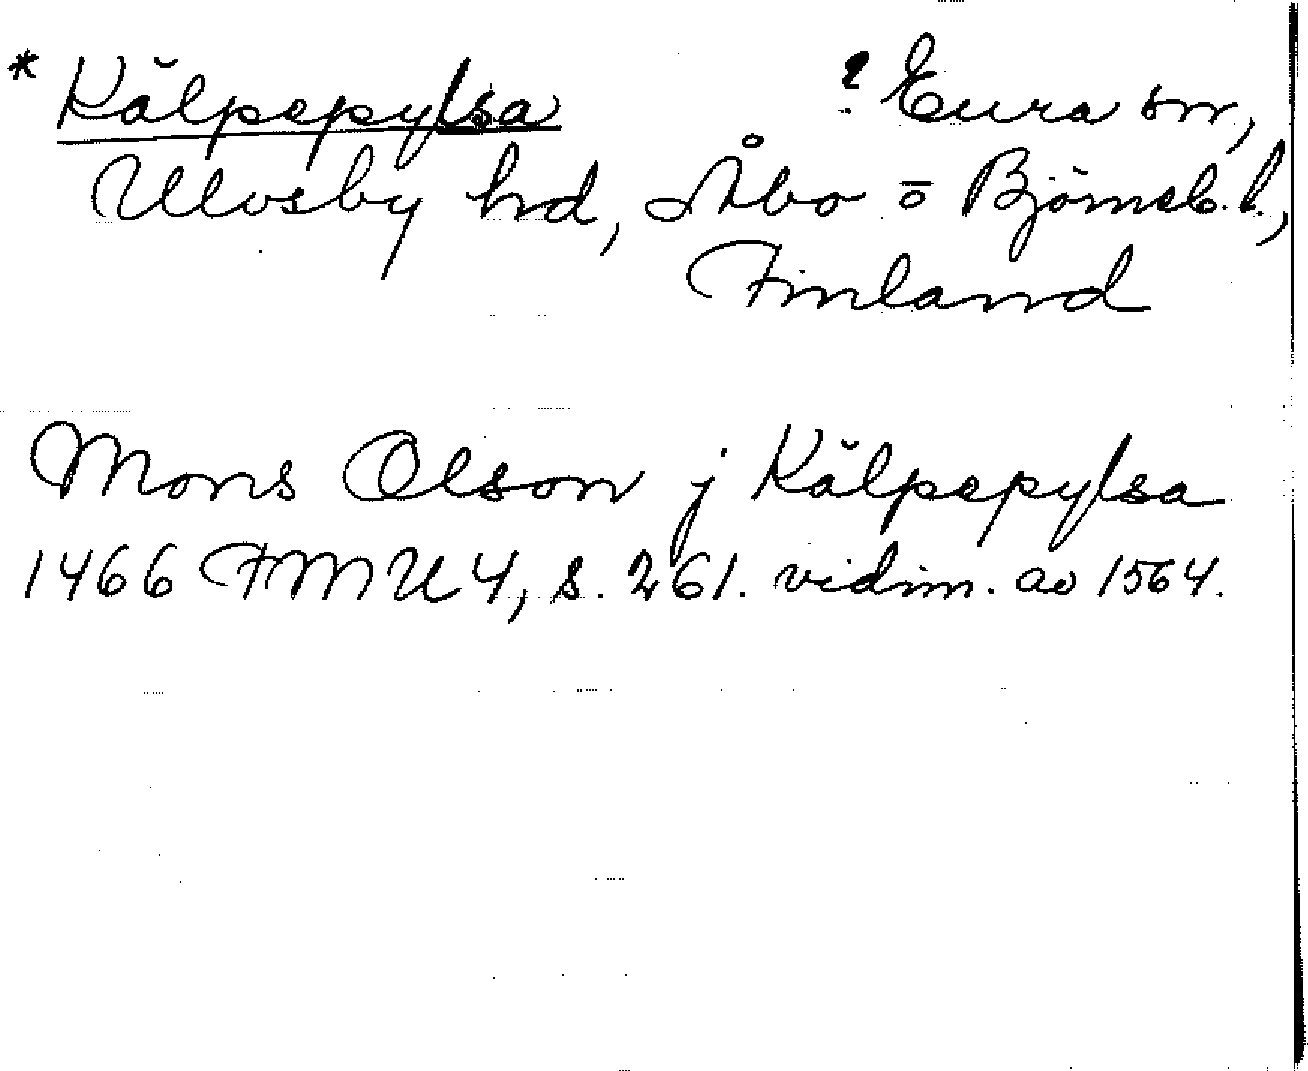 * Kälpepylsa ? Eura sn,
Ulvsby hd, Åbo o Björneb. l.,
Finland
Mons Olson j Kälpepylsa
1466 FMU 4, s. 261. vidim. av 1564.